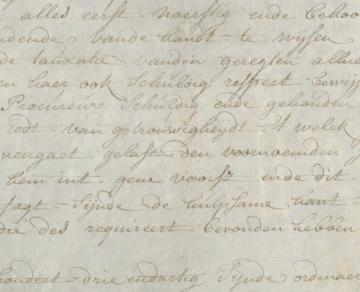 alles eerst naerstig ende behoo
udende vande handt te wysen
de taxatie vanden geregten alhie
en haer ook Schuldig respect bewys
Procureur Schuldig ende gehouden
Eedt van getrouwigheydt 't welck
aengaet gelast den voornoemden
hem int gene voorsz ende dit
sagt sijnde de hulpsame hant
die des requireert bevonden hebben
hondert drie endartig Sijnde ordinaer